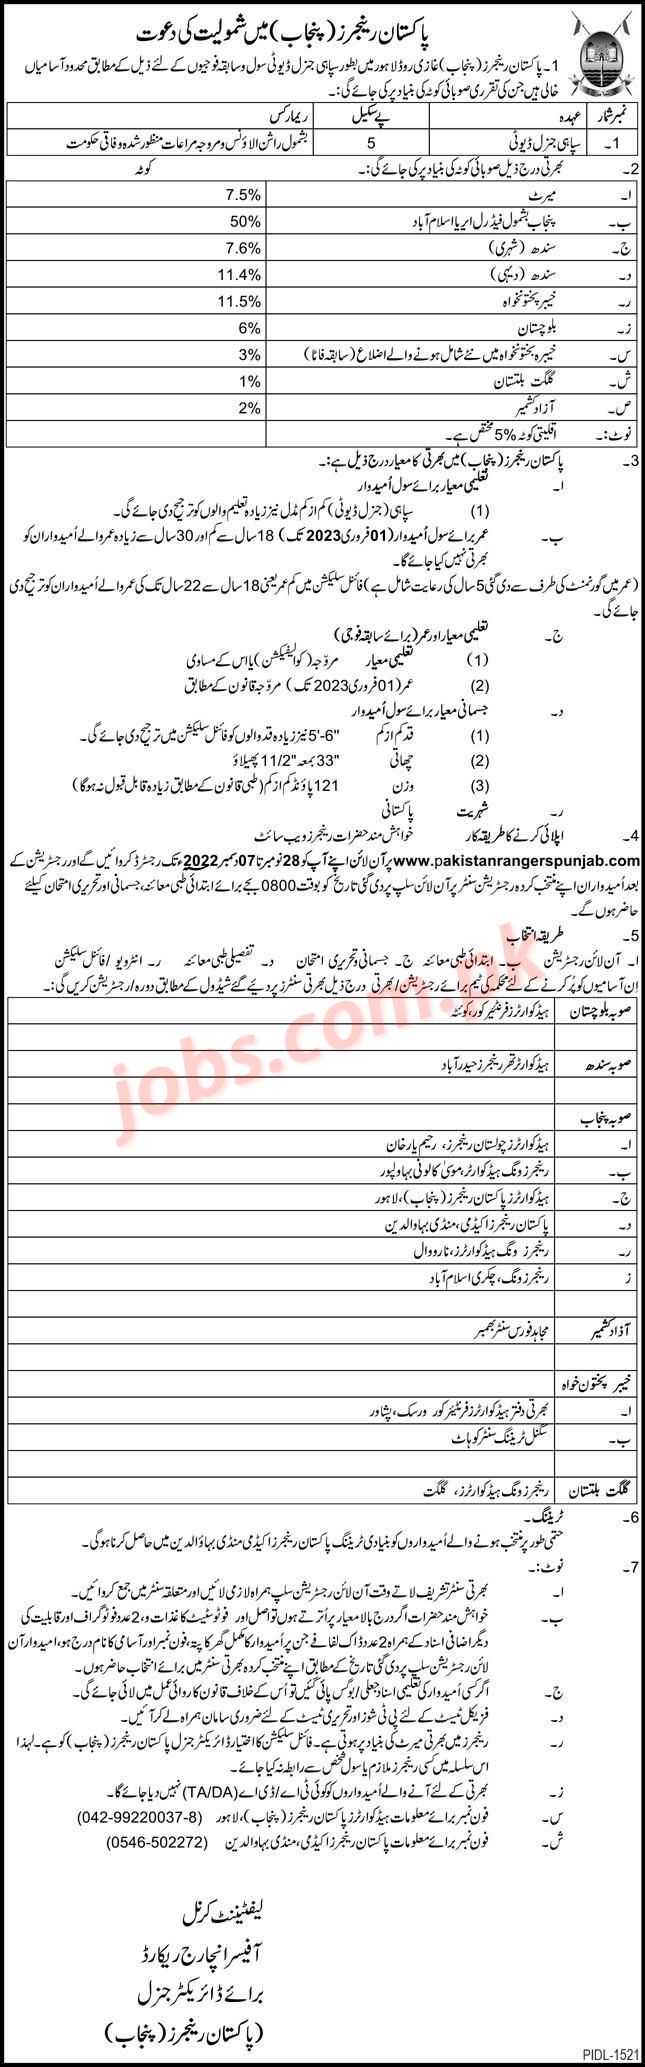 پاکستان رینجرز (پنجاب) میں شمولیت کی دعوت
1۔ پاکستان رینجرز (پنجاب) غازی روڈ لاہور میں بطور سپاہی جنرل ڈیوٹی سول وسابقہ فوجیوں کے لئے ذیل کے مطابق محدود آسامیاں
خالی ہیں جن کی تقرری صوبائی کوٹہ کی بنیاد پر کی جائے گی:۔
نمبر شمار عہدہ پے سکیل ریمارکس
1۔ سپاہی جنرل ڈیوٹی 5 بشمول راشن الاؤنس ومروجہ مراعات منظور شدہ وفاقی حکومت
2۔ بھرتی درج ذیل صوبائی کوٹہ کی بنیاد پر کی جائے گی:۔ کوٹہ
ا۔ میرٹ 7.5%
ب۔ پنجاب بشمول فیڈرل ایریا اسلام آباد 50%
ج۔ سندھ (شہری) 7.6%
د۔ سندھ (دیہی) 11.4%
ر۔ خیبر پختونخواہ 11.5%
ز۔ بلوچستان 6%
س۔ خیبرہ پختونخواہ میں نئے شامل ہونے والے اضلاع (سابقہ فاٹا) 3%
ش۔ گلگت بلتستان 1%
ص۔ آزاد کشمیر 2%
نوٹ:۔ اقلیتی کوٹہ 5% مختص ہے۔
3۔ پاکستان رینجرز (پنجاب) میں بھرتی کا معیار درج ذیل ہے:۔
ا۔ تعلیمی معیار برائے سول اُمیدوار
(1) سپاہی (جنرل ڈیوٹی) کم از کم مڈل نیز زیادہ تعلیم والوں کو ترجیح دی جائے گی۔
ب۔ عمر برائے سول اُمیدوار (01 فروری 2023 تک) 18 سال سے کم اور 30 سال سے زیادہ عمر والے اُمیدواران کو
بھرتی نہیں کیا جائے گا۔
(عمر میں گورنمنٹ کی طرف سے دی گئی 5 سال کی رعایت شامل ہے) فائنل سلیکشن میں کم عمر یعنی 18 سال سے 22 سال تک کی عمر والے اُمیدواران کو ترجیح دی
جائے گی۔
ج۔ تعلیمی معیار اور عمر (برائے سابقہ فوجی)
(1) تعلیمی معیار مروّجہ (کوالیفکیشن) یا اس کے مساوی
(2) عمر (01 فروری 2023 تک) مروّجہ قانون کے مطابق
د۔ جسمانی معیار برائے سول اُمیدوار
(1) قد کم از کم 5'-6" نیز زیادہ قد والوں کو فائنل سلیکشن میں ترجیح دی جائے گی۔
(2) چھاتی 33" بمعہ 11/2" پھیلاؤ
(3) وزن 121 پاؤنڈ کم از کم (طبی قانون کے مطابق زیادہ قابل قبول نہ ہوگا)
ر۔ شہریت پاکستانی
4۔ اپلائی کرنے کا طریقہ کار خواہش مند حضرات رینجرز ویب سائٹ
www.pakistanrangerspunjab.com پر آن لائن اپنے آپ کو 28 نومبر تا 07 دسمبر 2022ء تک رجسٹرڈ کروائیں گے اور رجسٹریشن کے
بعد اُمیدواران اپنے منتخب کردہ رجسٹریشن سنٹر پر آن لائن سلپ پر دی گئی تاریخ کو بوقت 0800 بجے برائے ابتدائی طبی معائنہ، جسمانی اور تحریری امتحان کیلئے
حاضر ہوں گے۔
5۔ طریقہ انتخاب
ا۔ آن لائن رجسٹریشن ب۔ ابتدائی طبی معائنہ ج۔ جسمانی و تحریری امتحان د۔ تفصیلی طبی معائنہ ر۔ انٹرویو/فائنل سلیکشن
اِن آسامیوں کو پُر کرنے کے لئے محکمہ کی ٹیم برائے رجسٹریشن/بھرتی درج ذیل بھرتی سنٹرز پر دیئے گئے شیڈول کے مطابق دورہ/رجسٹریشن کریں گی:۔
صوبہ بلوچستان ہیڈ کوارٹرز فرنٹیر کور، کوئٹہ
صوبہ سندھ ہیڈ کوارٹرتھر رینجرز حیدرآباد
صوبہ پنجاب
ا۔ ہیڈ کوارٹرز چولستان رینجرز، رحیم یار خان
ب۔ رینجرز ونگ ہیڈ کوارٹر، موسیٰ کالونی بہاولپور
ج۔ ہیڈ کوارٹرز پاکستان رینجرز (پنجاب)، لاہور
د۔ پاکستان رینجرز اکیڈمی، منڈی بہاوالدین
ر۔ رینجرز ونگ ہیڈ کوارٹرز، نارووال
ز رینجرز ونگ، چکری اسلام آباد
آذاد کشمیر مجاہد فورس سنٹر بھمبر
خیبر پختون خواہ
ا۔ بھرتی دفتر ہیڈ کوارٹرز فرنٹیئر کور ورسک، پشاور
ب۔ سگنل ٹریننگ سنٹر کوہاٹ
گلگت بلتستان رینجرز ونگ ہیڈ کوارٹرز، گلگت
6۔ ٹریننگ۔
حتمی طور پر منتخب ہونے والے اُمیدواروں کو بنیادی ٹریننگ پاکستان رینجرز اکیڈمی منڈی بہاؤالدین میں حاصل کرنا ہوگی۔
7۔ نوٹ:۔
ا۔ بھرتی سنٹر تشریف لاتے وقت آن لائن رجسٹریشن سلپ ہمراہ لازمی لائیں اور متعلقہ سنٹر میں جمع کروائیں۔
ب۔ خواہش مند حضرات اگر درج بالا معیار پر اُترتے ہوں تو اصل اور فوٹوسٹیٹ کاغذات و 2 عدد فوٹوگراف اور قابلیت کی
دیگر اضافی اسناد کے ہمراہ 2 عدد ڈاک لفافے جن پر اُمیدوار کا مکمل گھر کا پتہ، فون نمبر اور آسامی کا نام درج ہو، امیدوار آن
لائن رجسٹریشن سلپ پر دی گئی تاریخ کے مطابق اپنے منتخب کردہ بھرتی سنٹر میں برائے انتخاب حاضر ہوں۔
ج۔ اگر کسی اُمیدوار کی تعلیمی اسناد جعلی/بوگس پائی گئیں تو اُس کے خلاف قانون کاروائی عمل میں لائی جائے گی۔
د۔ فزیکل ٹیسٹ کے لئے پی ٹی شوز اور تحریری ٹیسٹ کے لئے ضروری سامان ہمراہ لے کر آئیں۔
ر۔ رینجرز میں بھرتی میرٹ کی بنیاد پر ہوتی ہے۔ فائنل سلیکشن کا اختیار ڈائریکٹر جنرل پاکستان رینجرز (پنجاب) کو ہے۔ لہذا
اس سلسلہ میں کسی رینجرز ملازم یا سول شخص سے رابطہ نہ کیا جائے۔
ز۔ بھرتی کے لئے آنے والے اُمیدواروں کو کوئی ٹی اے/ڈی اے (TA/DA) نہیں دیا جائے گا۔
س۔ فون نمبر برائے معلومات ہیڈ کوارٹرز پاکستان رینجرز (پنجاب)، لاہور (042-99220037-8)
ش۔ فون نمبر برائے معلومات پاکستان رینجرز اکیڈمی، منڈی بہاوالدین (0546-502272)
لیفٹیننٹ کرنل
آفیسر انچارج ریکارڈ
برائے ڈائریکٹر جنرل
(پاکستان رینجرز (پنجاب)
PIDL-1521
jobs.com.pk